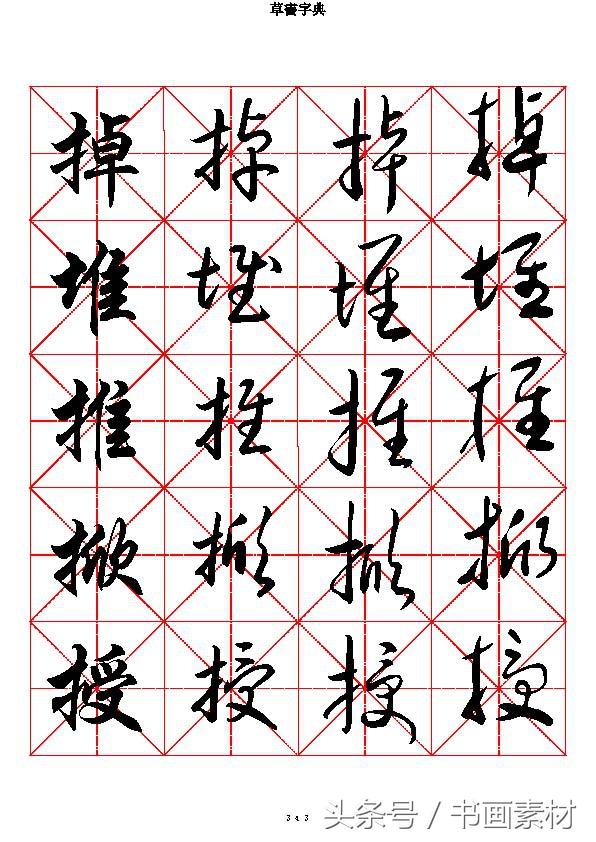 草書字典
掉掉掉掉
堆堆堆堆
推推推推
掀掀掀掀
授授授授
343
头条号 / 书画素材